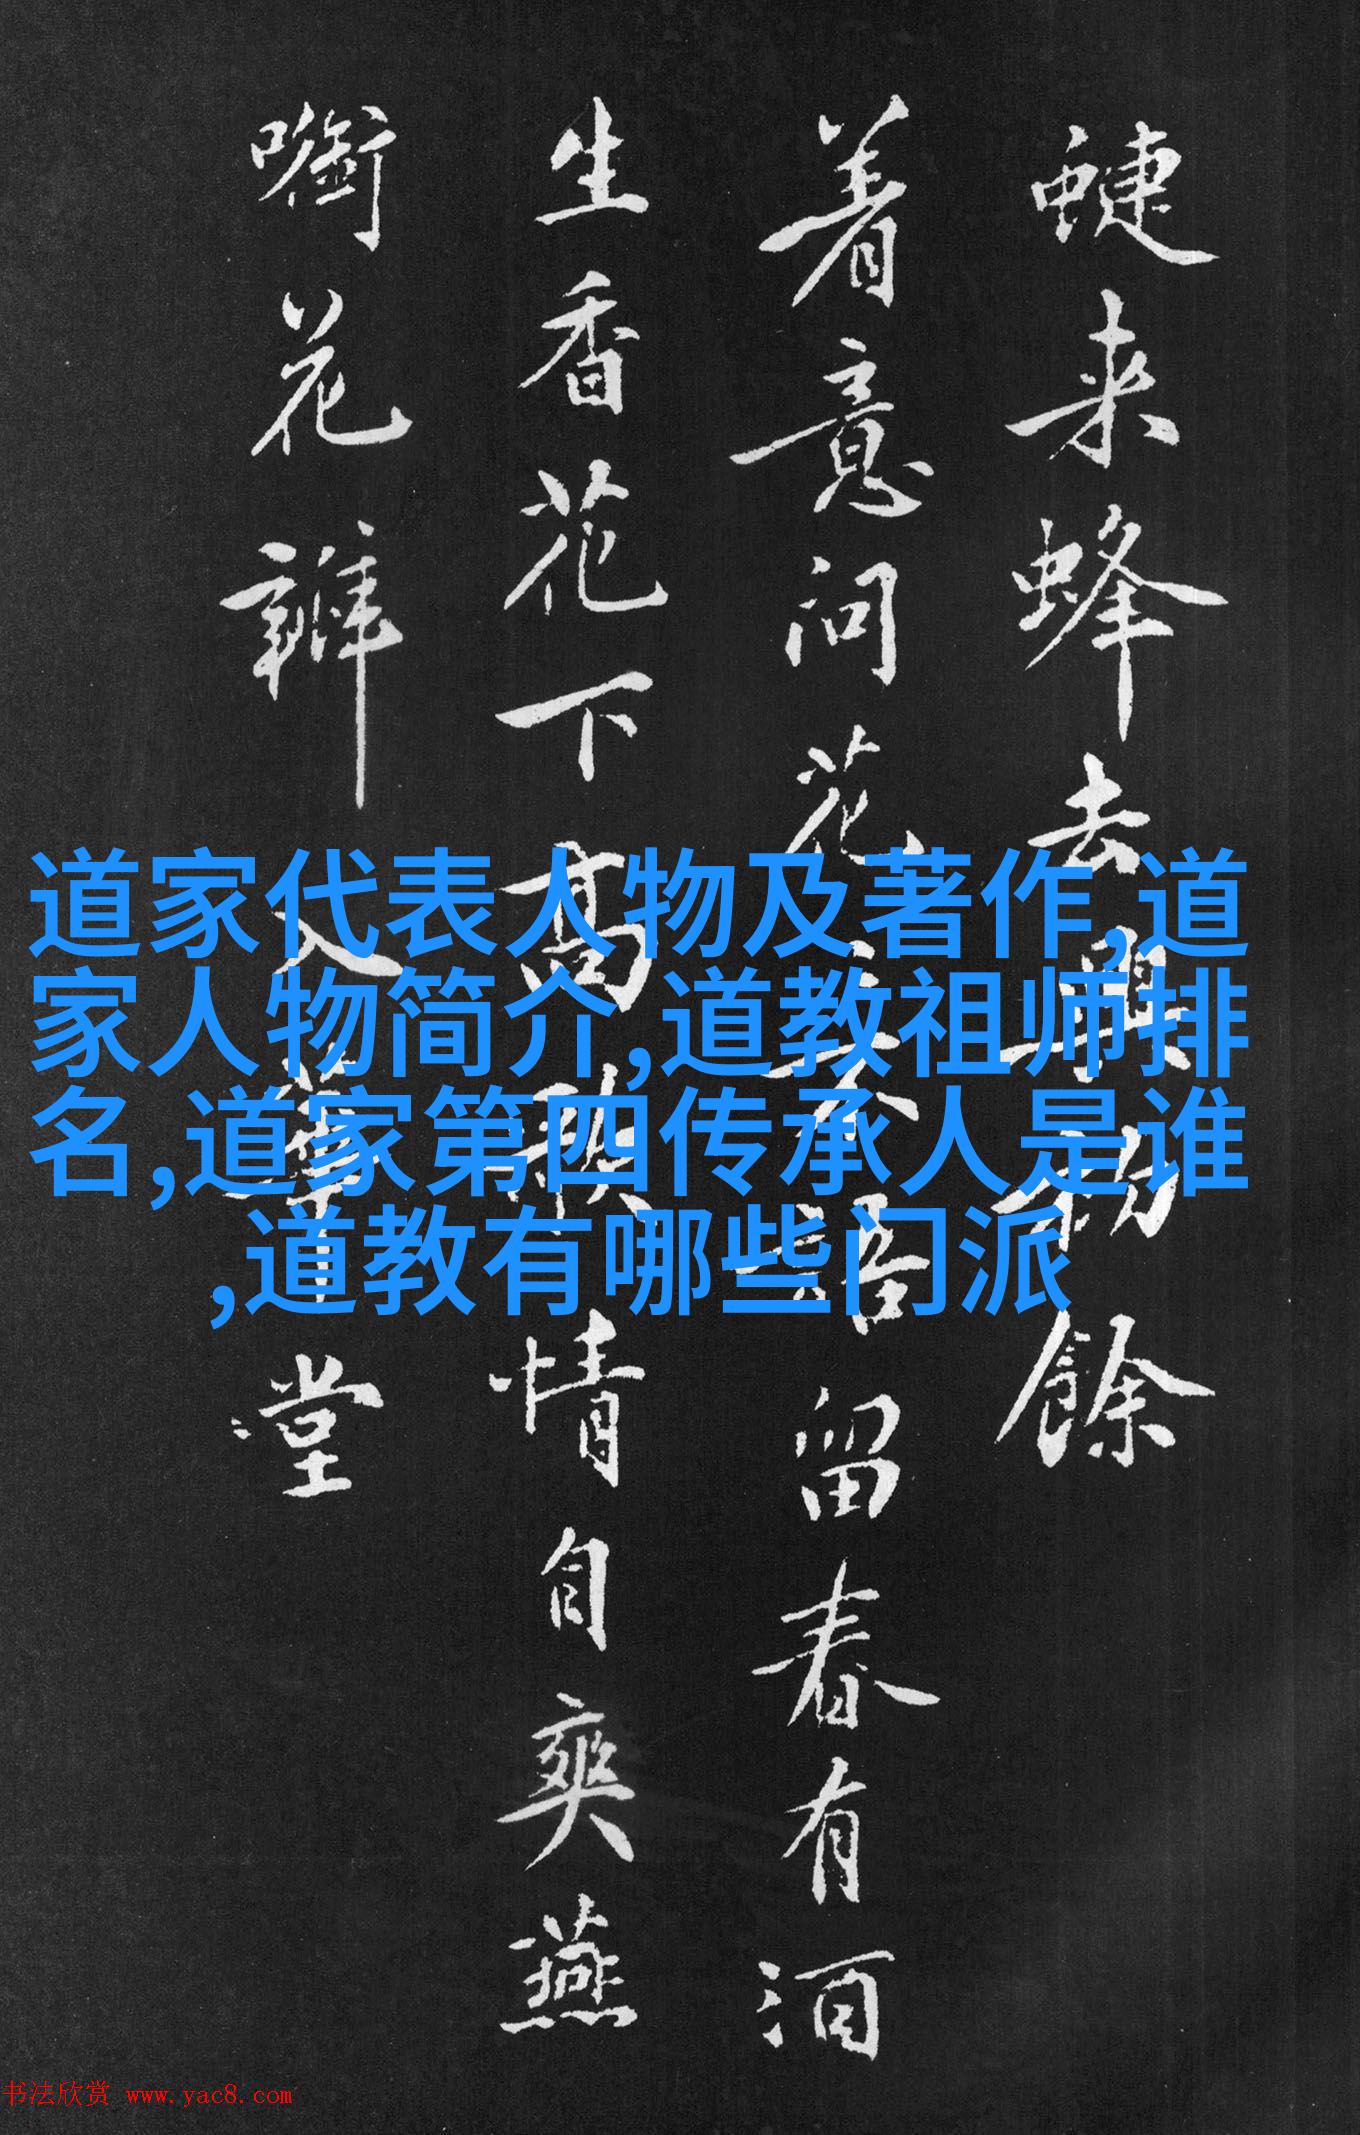 蜨来蜂去興初餘
着意问花不語留春有酒
生香花下高歌情自爽燕
啣花瓣入堂
道家代表人物及著作,道
家人物简介,道教祖师排
名,道家第四传承人是谁
,道教有哪些门派
书法欣赏 www.yac8.com